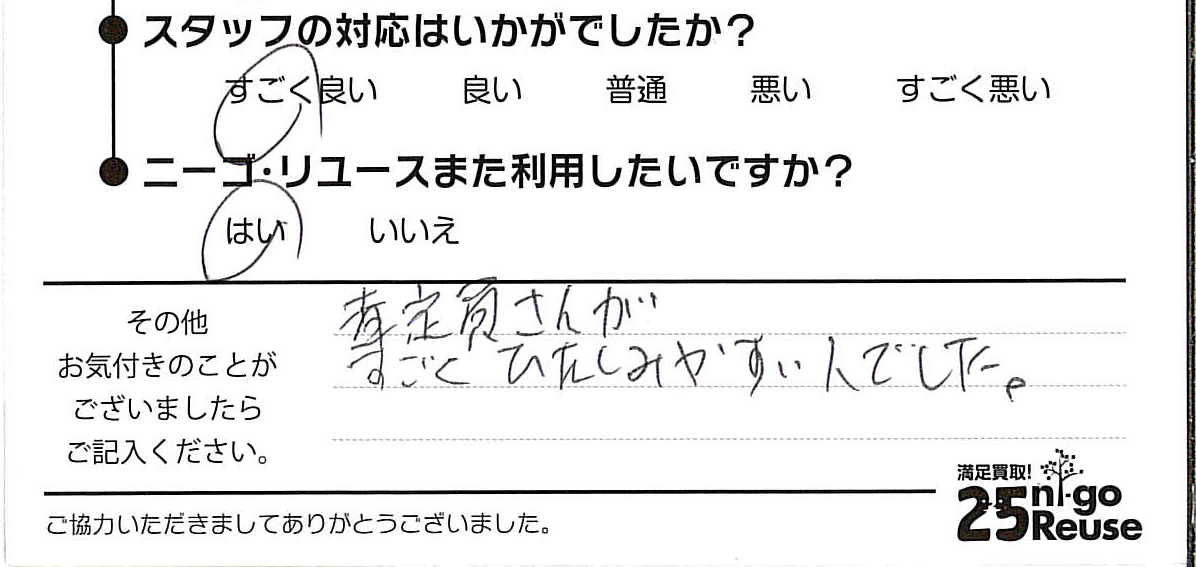 スタッフの対応はいかがでしたか?
すごく良い 良い 普通 悪い すごく悪い
ニーゴ・リユースまた利用したいですか?
はい いいえ
その他
お気付きのことが
ございましたら
ご記入ください。
査定員さんが
すごくひたしみやすい人でした。
ご協力いただきましてありがとうございました。
満足買取!
25 ni-go
Reuse